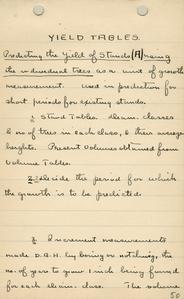 YIELD TABLES.
Predicting the Yield of Stands (A) using
the individual trees as a unit of growth
measurement. Used in prediction for
short periods for existing stands.
1. Stand Tables. Diam. classes
& no. of trees in each class, & their average
heights. Present Volumes obtained from
Volume Tables.
2. Decide the period for which
the growth is to be predicted.
3. Increment measurements
made D.B.H. by boring or notching, the
no. of years to grow 1 inch being found
for each diam. class. The volume
50